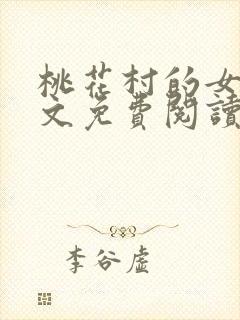 桃花村的女
文免費閱讀
李谷虛